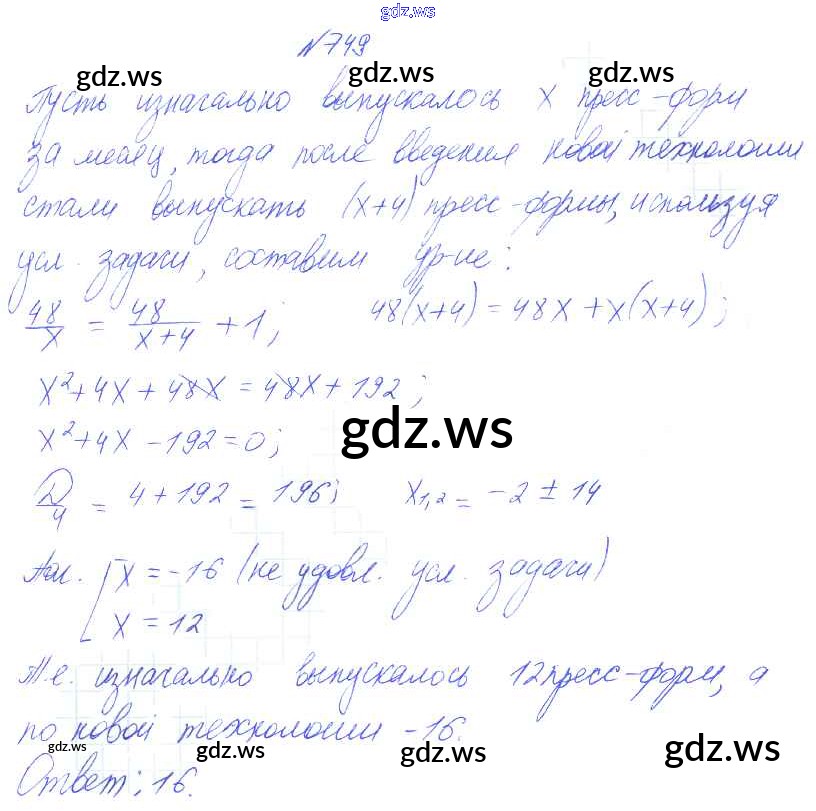 gdz.ws
№749
gdz.ws gdz.ws
Пусть изначально выпускалось x пресс-форм
за месяц, тогда после введения новой технологии
стали выпускать (x+4) пресс-формы, используя
усл. задачи, составим ур-ие:
48/x = 48/(x+4) + 1; 48(x+4) = 48x + x(x+4);
x²+4x+48x = 48x+192;
gdz.ws
x²+4x-192=0;
D/4 = 4+192 = 196; x₁,₂ = -2 ± 14
[x = -16 (не удовл. усл. задачи)
x = 12
Т.е. изначально выпускалось 12 пресс-форм, а
по новой технологии -16.
gdz.ws gdz.ws gdz.ws gdz.ws
Ответ: 16.